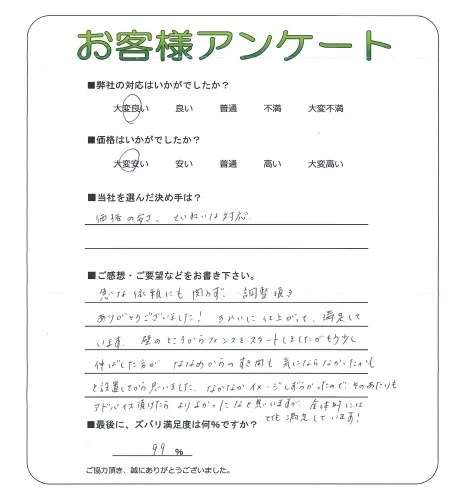 お客様アンケート
■弊社の対応はいかがでしたか？
大変良い 良い 普通 不満 大変不満
■価格はいかがでしたか？
大変安い 安い 普通 高い 大変高い
■当社を選んだ決め手は？
価格の安さ、ていねいな対応
■ご感想・ご要望などをお書き下さい。
急な依頼にも関わらず、調整頂き
ありがとうございました！ きれいに仕上がって、満足して
います。壁のところからフェンスをスタートしましたがもう少し
伸ばした方が ななめからのすき間も 気にならなかったかも
と設置してから思いました。なかなかイメージしずらかったので、そのあたりも
アドバイス頂けたら よりよかったなと思いますが、全体的には
とても満足しています！
■最後に、ズバリ満足度は何%ですか？
99 %
ご協力頂き、誠にありがとうございました。